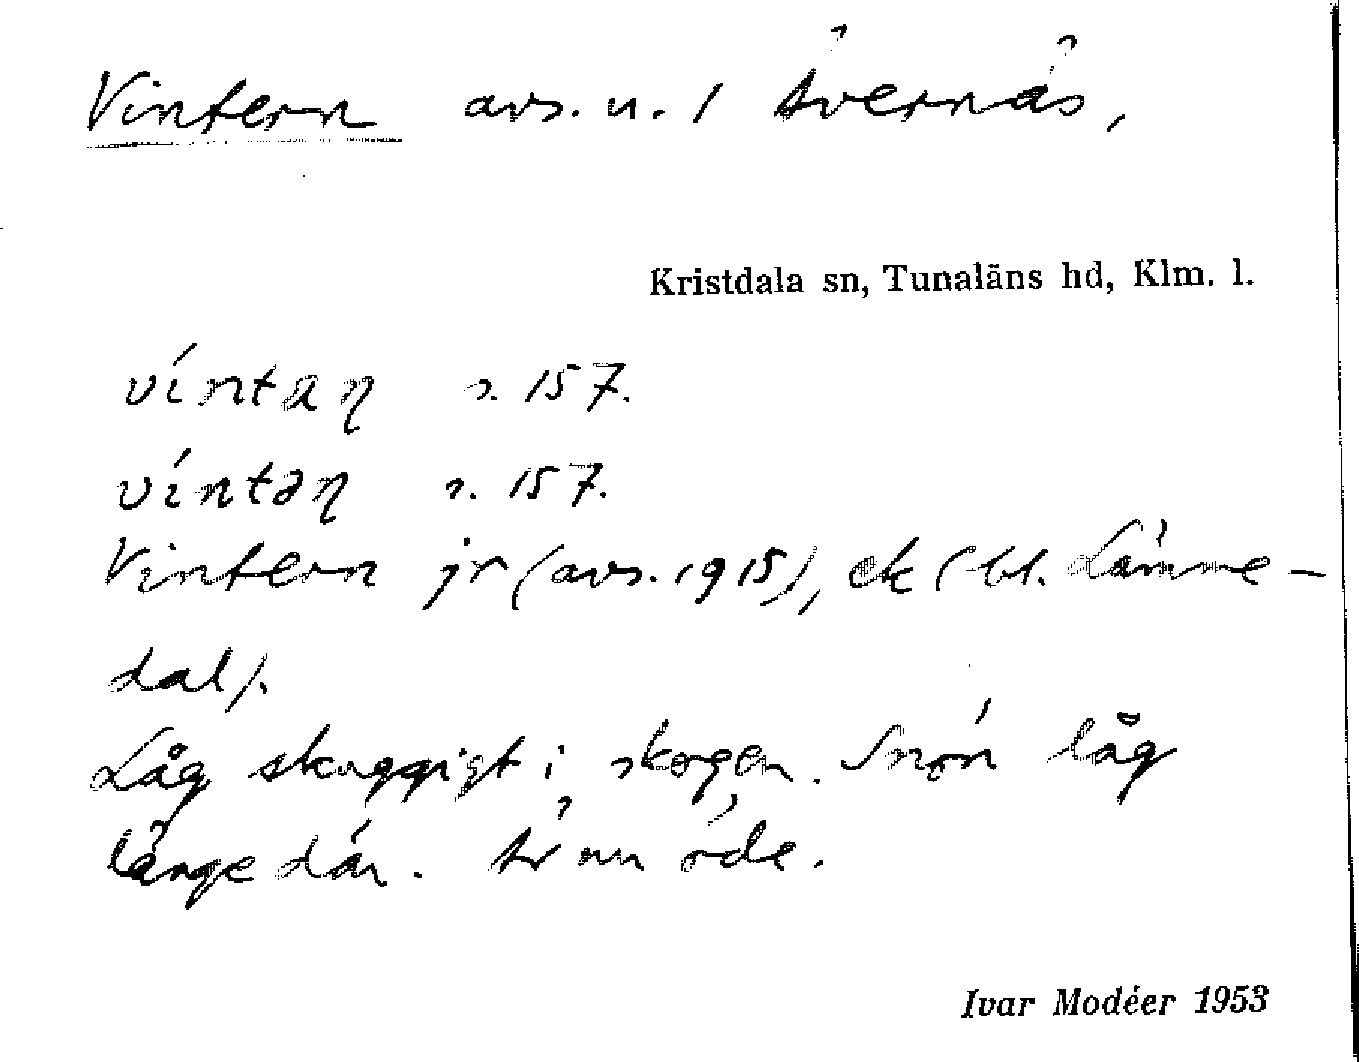 Vintern avs. u. / Åvernäs,
Kristdala sn, Tunaläns hd, Klm. l.
víntaꞃ s. 157.
víntəꞃ s. 157.
Vintern jr (avs. 1915), ek (bl. Lämne-
dal).
Låg skuggigt i skogen. Snön låg
länge där. Är nu öde.
Ivar Modéer 1953